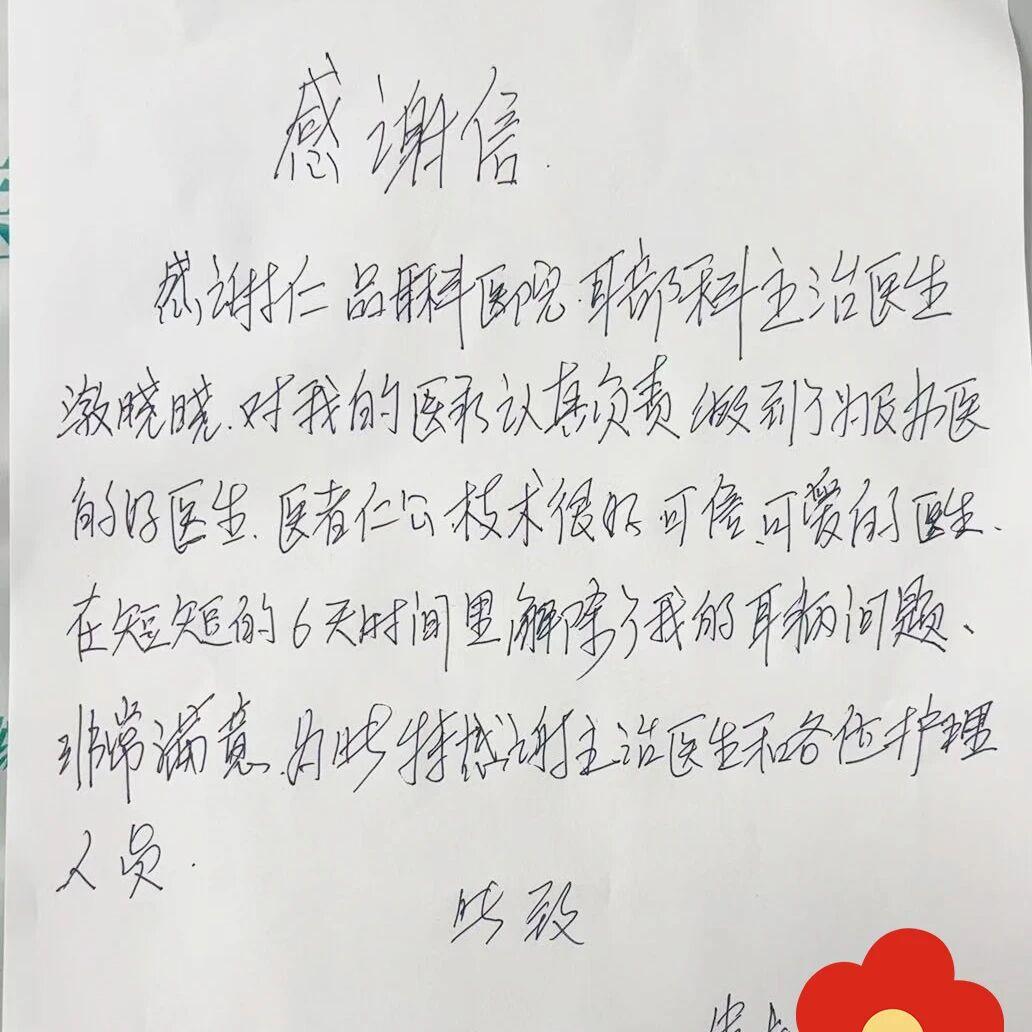 感谢信.
感谢仁品耳科医院.耳部科主治医生
激晓晓.对我的医疗认真负责做到了为民办医
的好医生.医者仁心.技术很好.可信.可爱的医生.
在短短的6天时间里解除了我的耳病问题、
非常满意.为此特感谢主治医生和各位护理
人员.
此致